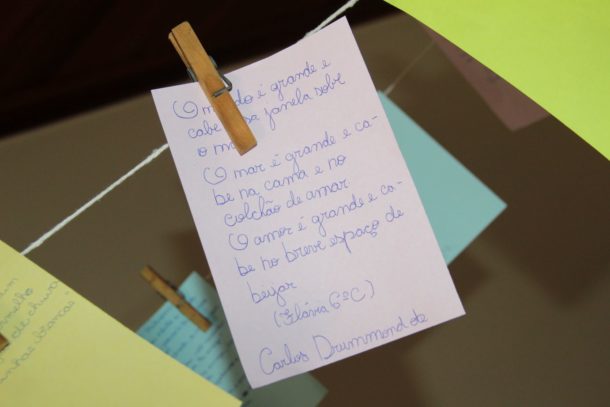 O é grande e
cabe janela sobe
o
O mar é grande e ca-
be na cama e no
colchão de amar
O amor é grande e ca-
be no breve espaço de
beijar
(Flávia 6ºC)
Carlos Drummond de